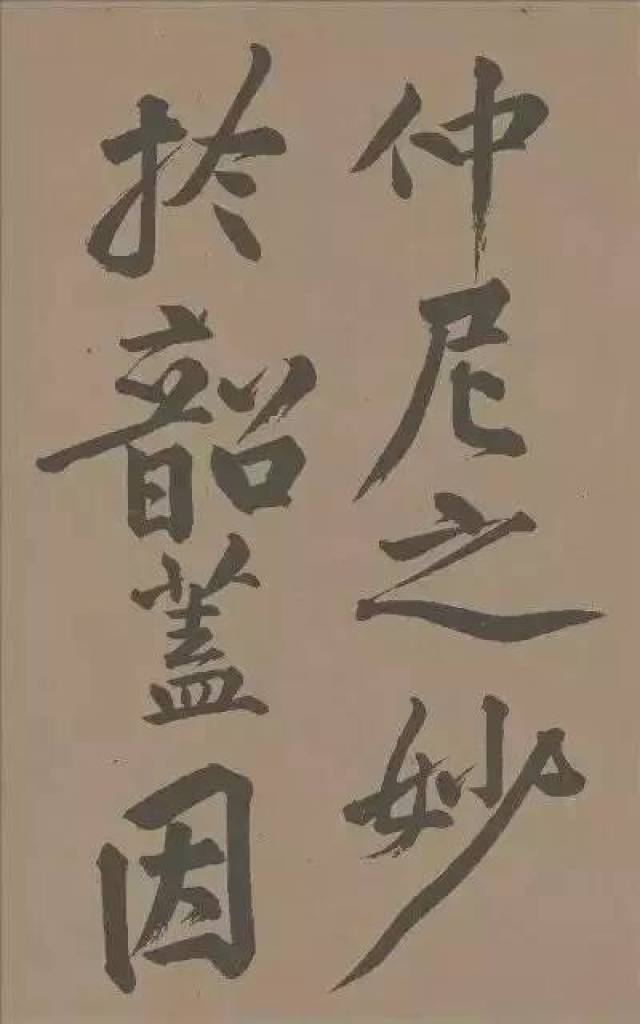 仲尼之妙
於韶蓋因